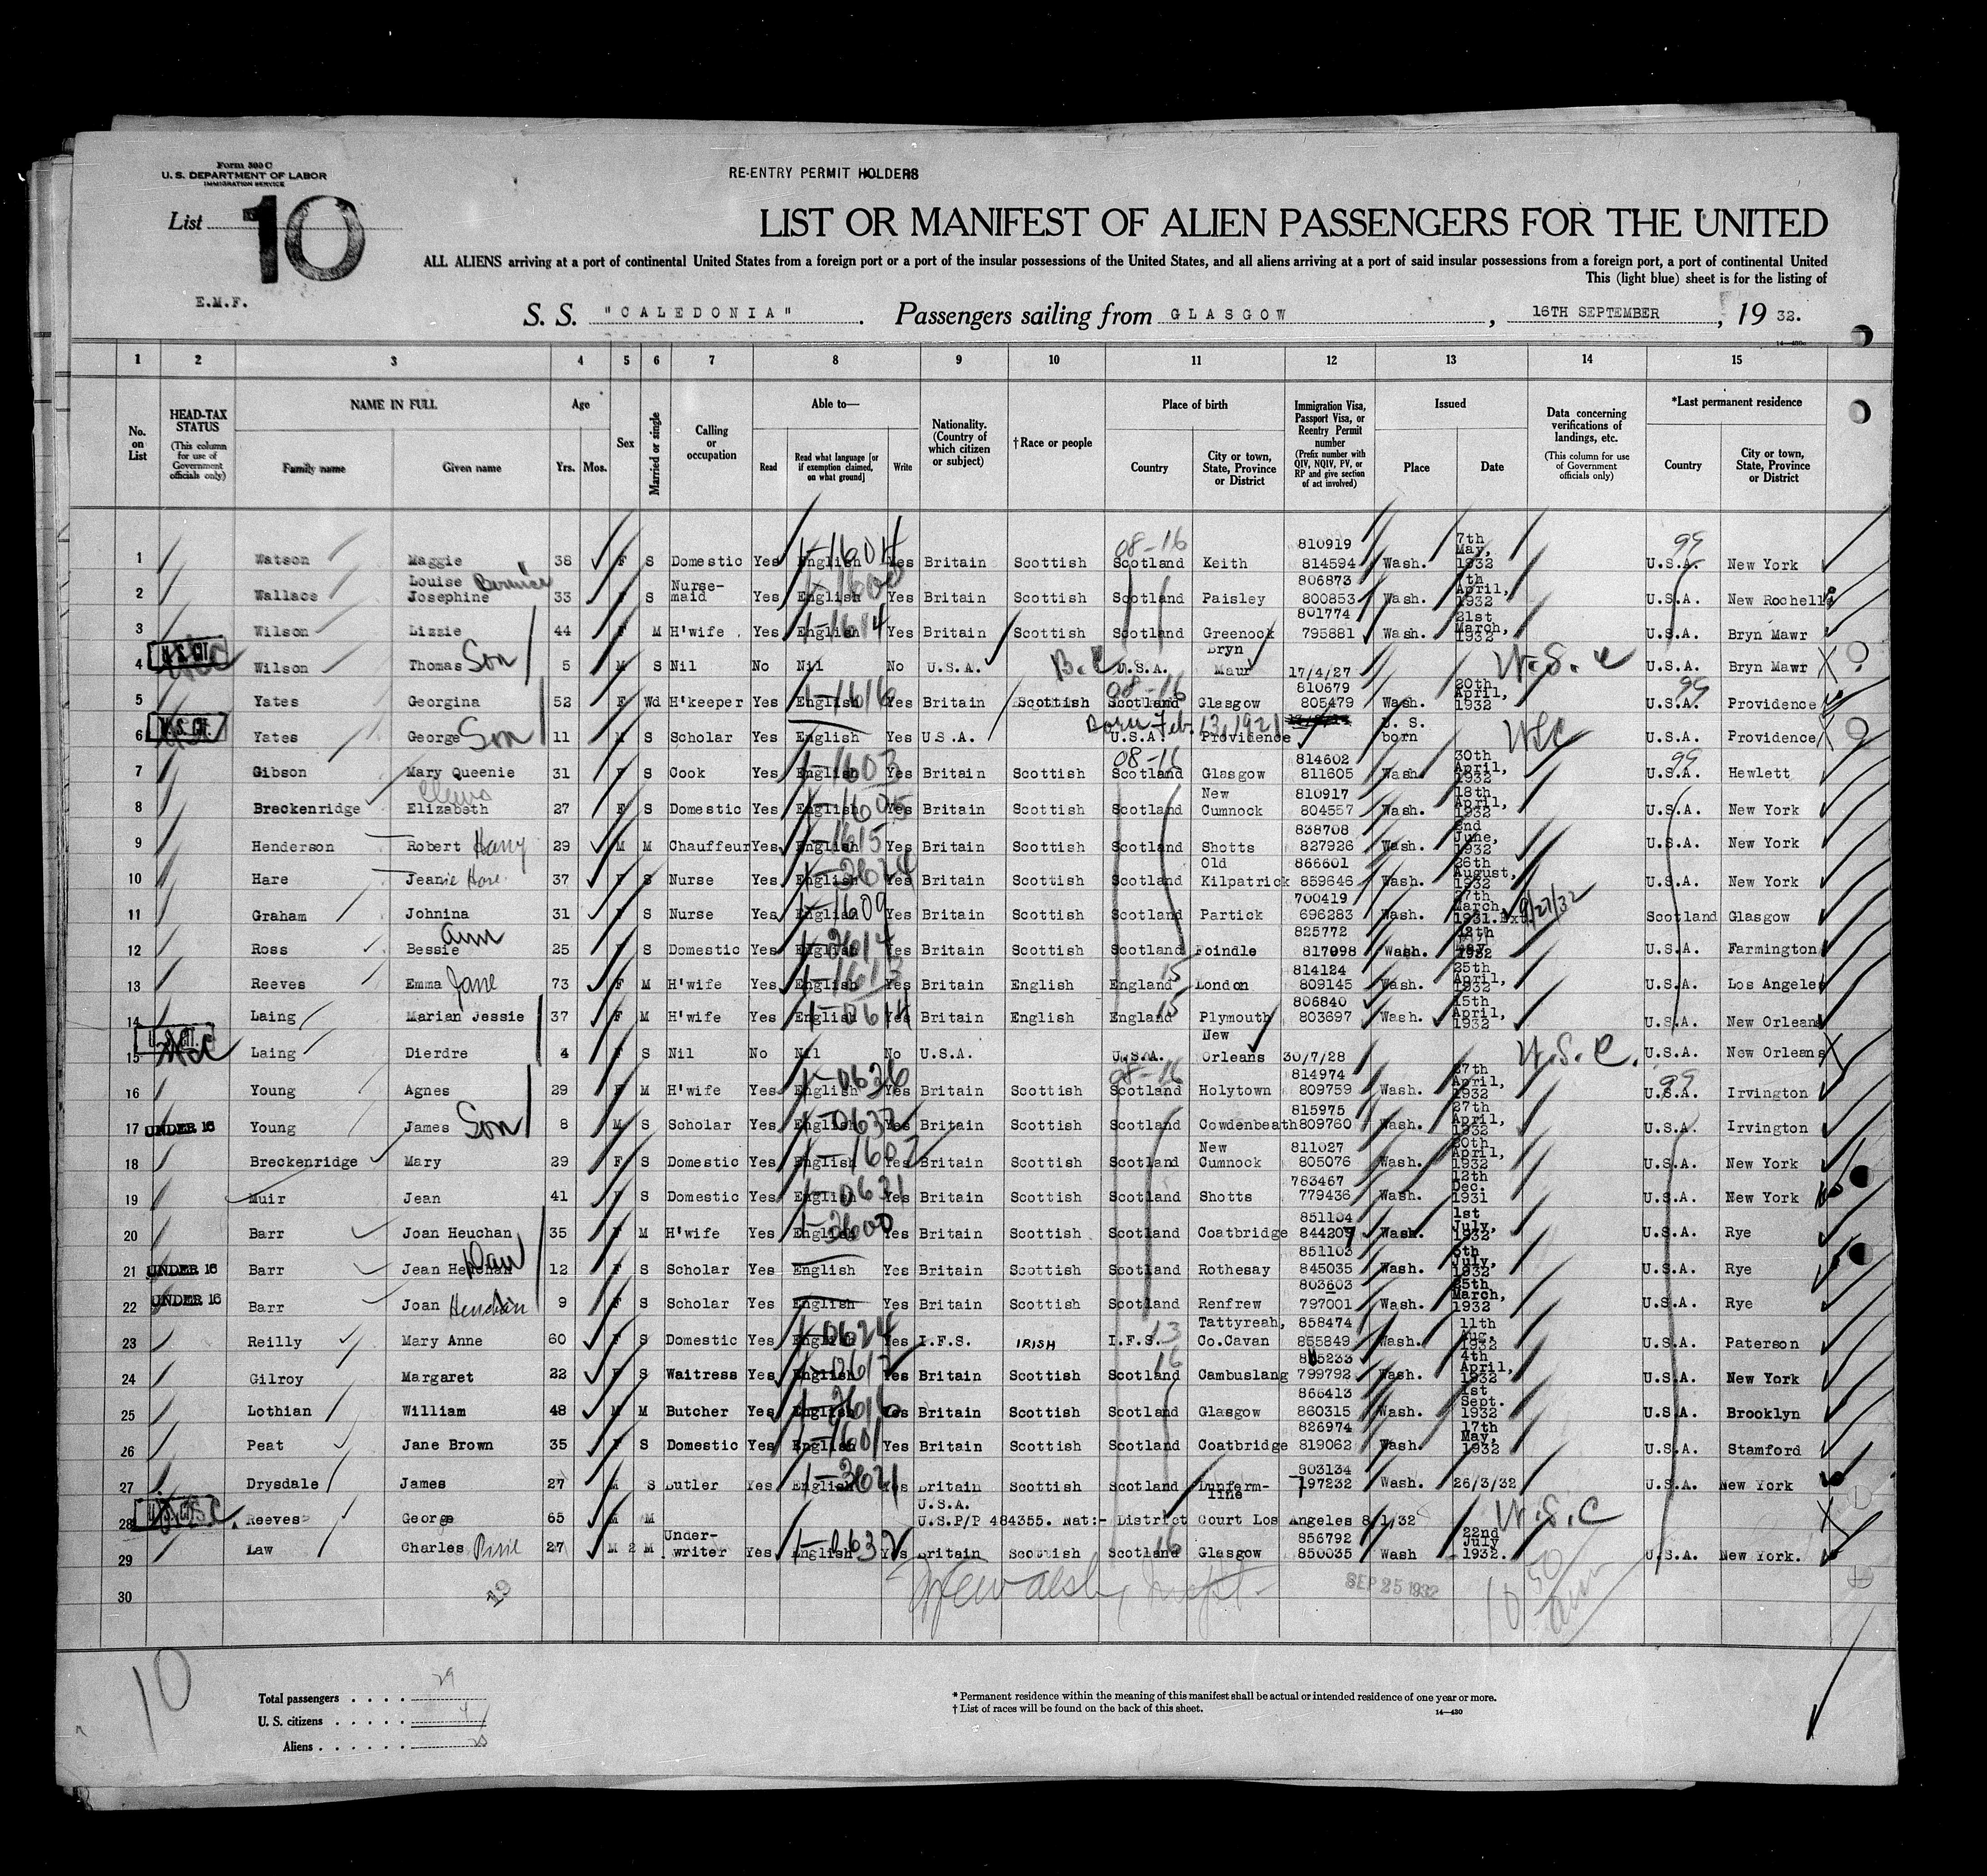 Form 500 C
U. S. DEPARTMENT OF LABOR
IMMIGRATION SERVICE
RE-ENTRY PERMIT HOLDERS
List 10
LIST OR MANIFEST OF ALIEN PASSENGERS FOR THE UNITED
ALL ALIENS arriving at a port of continental United States from a foreign port or a port of the insular possessions of the United States, and all aliens arriving at a port of said insular possessions from a foreign port, a port of continental United
This (light blue) sheet is for the listing of
E.M.F.
S. S. "CALEDONIA". Passengers sailing from GLASGOW, 16TH SEPTEMBER, 19 32.
1 2 3 4 5 6 7 8 9 10 11 12 13 14 15
No. on List
HEAD-TAX STATUS (This column for use of Government officials only)
NAME IN FULL Family name Given name
Age Yrs. Mos.
Sex
Married or single
Calling or occupation
Able to— Read Read what language [or if exemption claimed, on what ground] Write
Nationality. (Country of which citizen or subject)
†Race or people
Place of birth Country City or town, State, Province or District
Immigration Visa, Passport Visa, or Reentry Permit number (Prefix number with QIV, NQIV, PV, or RP and give section of act involved)
Issued Place Date
Data concerning verifications of landings, etc. (This column for use of Government officials only)
*Last permanent residence Country City or town, State, Province or District
1 Watson Maggie 38 F S Domestic Yes English 1-1604 Yes Britain Scottish 08-16 Scotland Keith 810919 814594 Wash. 7th May, 1932 99 U.S.A. New York
2 Wallace Louise Josephine 33 F S Nurse-maid Yes English Yes Britain Scottish Scotland Paisley 806873 800853 Wash. 7th April, 1932 U.S.A. New Rochelle
3 Wilson Lizzie 44 F M H'wife Yes English 1-1614 Yes Britain Scottish Scotland Greenock 801774 795881 Wash. 21st March, 1932 U.S.A. Bryn Mawr
4 U.S. CIT. Wilson Thomas Son 5 M S Nil No Nil No U.S.A. U.S.A. Bryn Maur 17/4/27 U.S.C U.S.A. Bryn Mawr
5 Yates Georgina 52 F Wd H'keeper Yes English 1-1616 Yes Britain Scottish 08-16 Scotland Glasgow 810679 805479 Wash. 20th April, 1932 99 U.S.A. Providence
6 U.S. CIT. Yates George Son 11 M S Scholar Yes English Yes U.S.A. Born Feb. 13, 1921 U.S.A. Providence U. S. born USC U.S.A. Providence
7 Gibson Mary Queenie 31 F S Cook Yes English 1-1603 Yes Britain Scottish 08-16 Scotland Glasgow 814602 811605 Wash. 30th April, 1932 99 U.S.A. Hewlett
8 Breckenridge Elizabeth 27 F S Domestic Yes English 1-1605 Yes Britain Scottish Scotland New Cumnock 810917 804557 Wash. 18th April, 1932 U.S.A. New York
9 Henderson Robert Harry 29 M M Chauffeur Yes English 1-1615 Yes Britain Scottish Scotland Shotts 838708 827926 Wash. 2nd June, 1932 U.S.A. New York
10 Hare Jeanie Hare 37 F S Nurse Yes English Yes Britain Scottish Scotland Old Kilpatrick 866601 859646 Wash. 26th August, 1932 U.S.A. New York
11 Graham Johnina 31 F S Nurse Yes English 1-1609 Yes Britain Scottish Scotland Partick 700419 696283 Wash. 27th March, 1931. Ext 9/27/32 Scotland Glasgow
12 Ross Bessie Ann 25 F S Domestic Yes English Yes Britain Scottish Scotland Foindle 825772 817098 Wash. 12th May, 1932 U.S.A. Farmington
13 Reeves Emma Jane 73 F M H'wife Yes English 1-1613 Yes Britain English England 15 London 814124 809145 Wash. 25th April, 1932 U.S.A. Los Angeles
14 Laing Marian Jessie 37 F M H'wife Yes English 1-0614 Yes Britain English England 15 Plymouth 806840 803697 Wash. 15th April, 1932 U.S.A. New Orleans
15 U.S. CIT. Laing Dierdre 4 F S Nil No Nil No U.S.A. U.S.A. New Orleans 30/7/28 U.S.C. U.S.A. New Orleans
16 Young Agnes 29 F M H'wife Yes English 1-0636 Yes Britain Scottish 08-16 Scotland Holytown 814974 809759 Wash. 27th April, 1932 99 U.S.A. Irvington
17 UNDER 16 Young James Son 8 M S Scholar Yes English 1-0637 Yes Britain Scottish Scotland Cowdenbeath 815975 809760 Wash. 27th April, 1932 U.S.A. Irvington
18 Breckenridge Mary 29 F S Domestic Yes English 1-1602 Yes Britain Scottish Scotland New Cumnock 811027 805076 Wash. 20th April, 1932 U.S.A. New York
19 Muir Jean 41 F S Domestic Yes English 1-0631 Yes Britain Scottish Scotland Shotts 783467 779436 Wash. 12th Dec. 1931 U.S.A. New York
20 Barr Joan Heuchan 35 F M H'wife Yes English 1-2600 Yes Britain Scottish Scotland Coatbridge 851104 844207 Wash. 1st July, 1932 U.S.A. Rye
21 UNDER 16 Barr Jean Heuchan Dau 12 F S Scholar Yes English Yes Britain Scottish Scotland Rothesay 851103 845035 Wash. 6th July, 1932 U.S.A. Rye
22 UNDER 16 Barr Joan Heuchan 9 F S Scholar Yes English Yes Britain Scottish Scotland Renfrew 803603 797001 Wash. 25th March, 1932 U.S.A. Rye
23 Reilly Mary Anne 60 F S Domestic Yes English 1-0624 Yes I.F.S. IRISH I.F.S. 13 Tattyreah, Co.Cavan 858474 855849 Wash. 11th Aug. 1932 U.S.A. Paterson
24 Gilroy Margaret 22 F S Waitress Yes English Yes Britain Scottish 16 Scotland Cambuslang 799792 Wash. 4th April, 1932 U.S.A. New York
25 Lothian William 48 M M Butcher Yes English Yes Britain Scottish Scotland Glasgow 866413 860315 Wash. 1st Sept. 1932 U.S.A. Brooklyn
26 Peat Jane Brown 35 F S Domestic Yes English 1-1601 Yes Britain Scottish Scotland Coatbridge 826974 819062 Wash. 17th May, 1932 U.S.A. Stamford
27 Drysdale James 27 M S Butler Yes English Yes Britain Scottish Scotland Dunferm-line 803134 797232 Wash. 26/3/32 U.S.A. New York
28 U.S. CIT. Reeves George 65 M M U.S.A. U.S.P/P 484355. Nat:- District Court Los Angeles 8/1/32 U.S.C
29 Law Charles 27 M M Under-writer Yes English 1-0637 Yes Britain Scottish Scotland 16 Glasgow 856792 850035 Wash 22nd July 1932. U.S.A. New York.
30 SEP 25 1932
10
Total passengers . . . . 29
U. S. citizens . . . . . 4
Aliens . . . . . .
* Permanent residence within the meaning of this manifest shall be actual or intended residence of one year or more.
† List of races will be found on the back of this sheet.
14—430